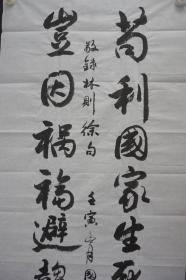 苟利國家生死
豈因禍福避趨
敬録林則徐句
壬寅三月國